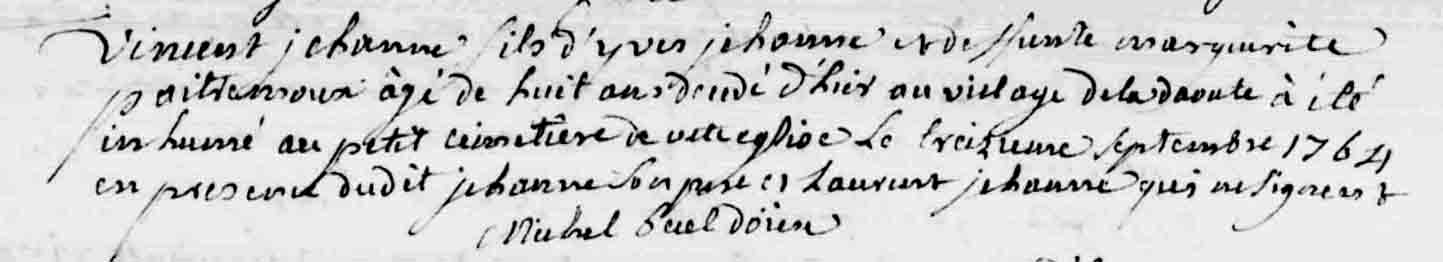 Vincent jehanne fils d'yves jehanne et deffunte marguerite
paitremoux âgé de huit ans décédé d'hier au village de la daoute à été
inhumé au petit cimetière de cette eglise le treizieme septembre 1764
en presence dudit jehanne son pere et Laurent jehanne qui ne signent
Michel